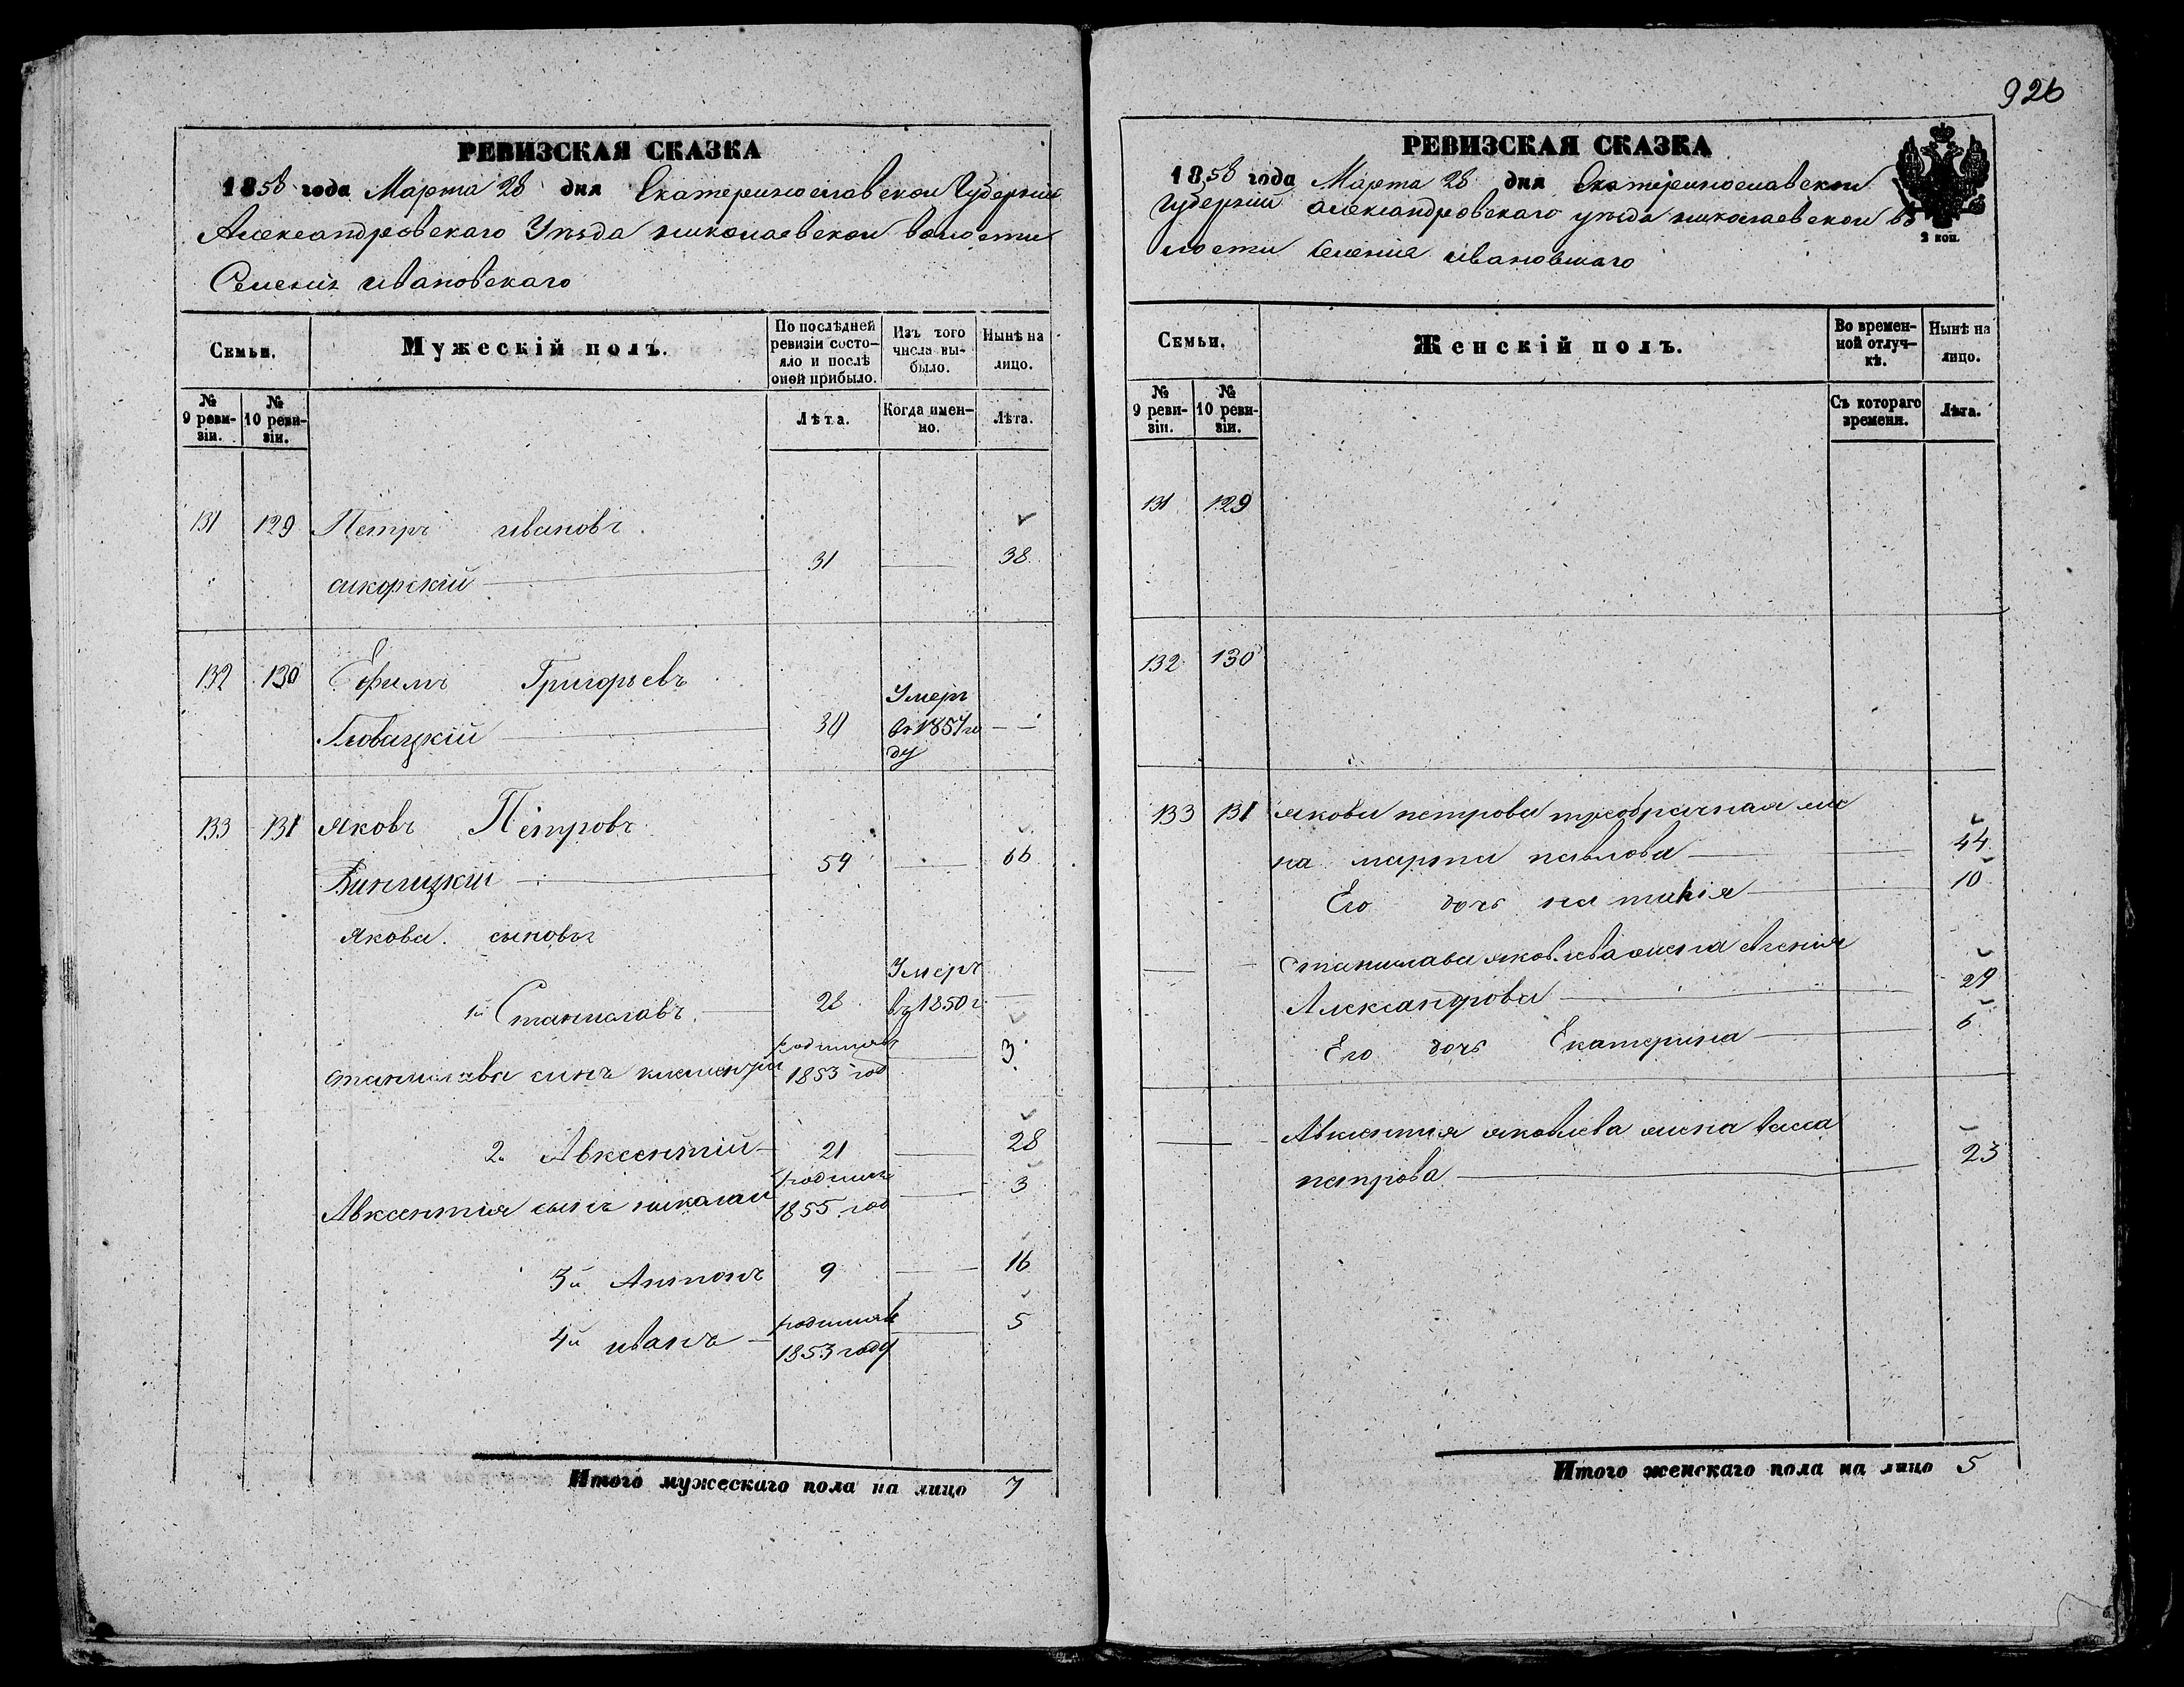 РЕВИЗСКАЯ СКАЗКА
1858 года Марта 28 дня Екатеринославской Губерніи
Александровскаго Уѣзда николаевской волости
Селенія ивановскаго
Семьи.
Мужескій полъ.
По послѣдней ревизіи состояло и послѣ оной прибыло.
Изъ того числа выбыло.
Нынѣ на лицо.
№ 9 ревизіи.
№ 10 ревизіи.
Лѣта.
Когда именно.
Лѣта.
131 129 Петръ ивановъ
сикорскій 31 38
132 130 Ефимъ Григорьевъ
34 Умеръ в 1857 году
133 131 яковъ Петровъ
59 66
Якова сыновья
1й Станиславъ 28 Умеръ въ 1850 г
станислава сынъ родился 1853 год 3
2й Авксентій 21 28
Авксентія сынъ николай родился 1855 год 3
3й Антонъ 9 16
4й иванъ родился 1853 году 5
Итого мужескаго пола на лицо 7
926
РЕВИЗСКАЯ СКАЗКА
1858 года Марта 28 дня Екатеринославской
Губерніи александровскаго уѣзда николаевской во
лости селенія ивановскаго
2 коп.
Семьи.
Женскій полъ.
Во временной отлучкѣ.
Нынѣ на лицо.
№ 9 ревизіи.
№ 10 ревизіи.
Съ котораго времени.
Лѣта.
131 129
132 130
133 131 якова петрова жe
на марта павлова 44
Его дочь 10
Станислава яковлева жена евгенія
Александрова 29
Его дочь Екатерина 6
Авксентія яковлева жена васса
петрова 23
Итого женскаго пола на лицо 5